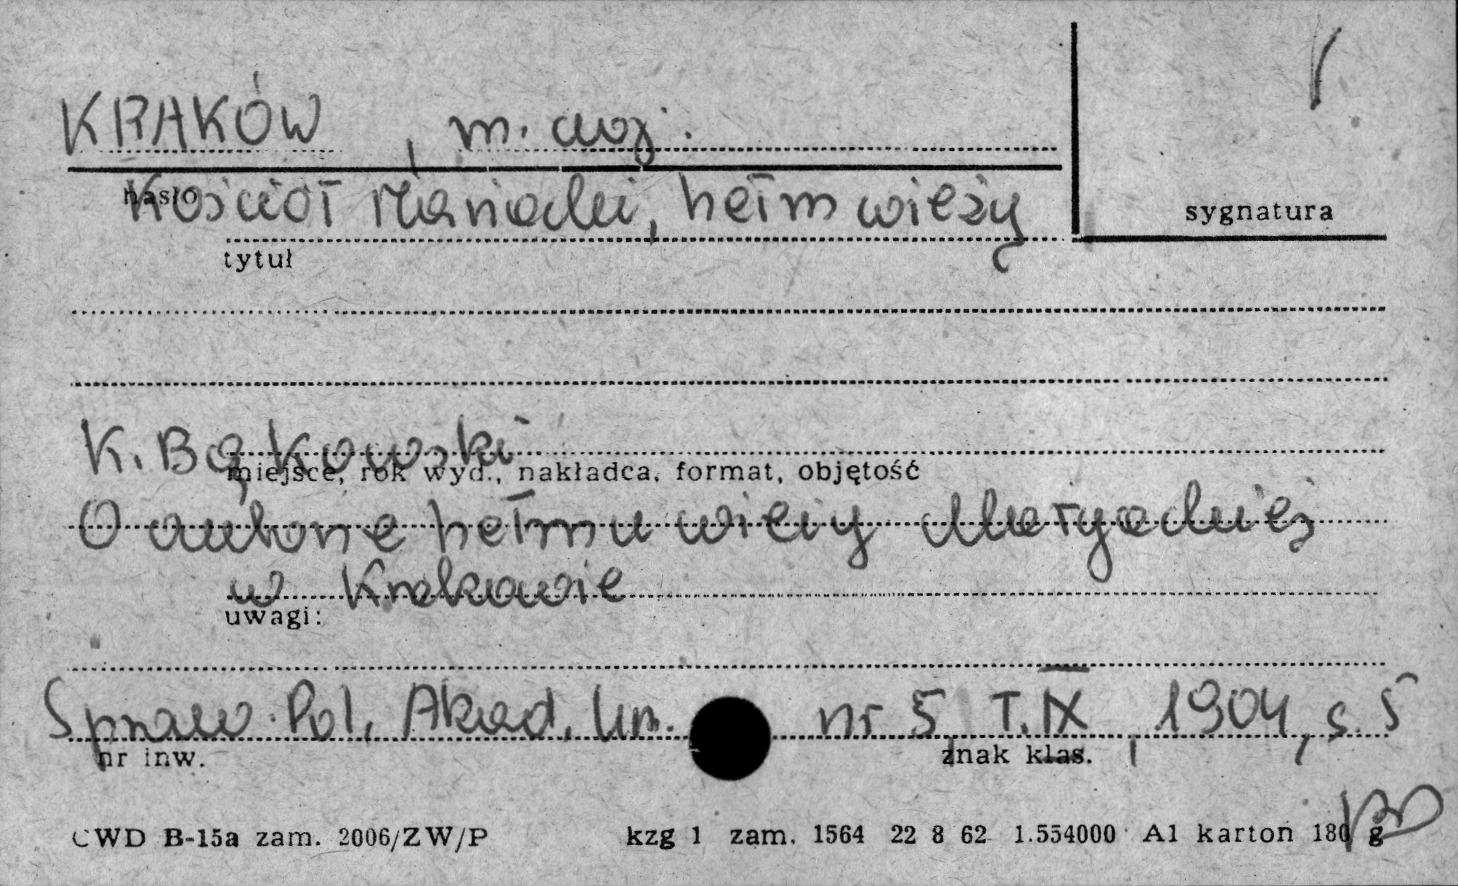 KRAKÓW, m. woj.
hasło
Kościół Mariacki, hełm wieży
sygnatura
tytuł
K. Bąkowski
miejsce, rok wyd., nakładca, format, objętość
O hełmu wieży Maryackiej
w Krakowie
uwagi:
Spraw. Pol. Akad. Um. nr 5, T. IX, 1904, s. 5
nr inw.
znak klas.
CWD B-15a zam. 2006/ZW/P kzg 1 zam. 1564 22 8 62 1.554000 A1 karton 180 g